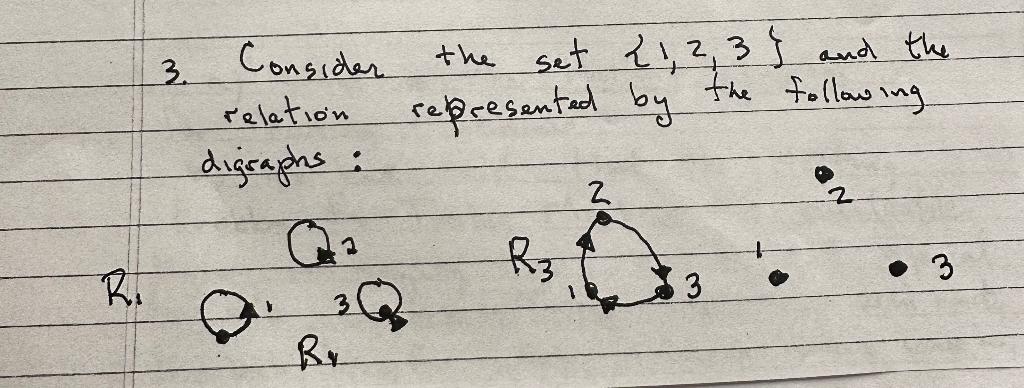 3. Consider the set {1, 2, 3} and the
relation represented by the following
digraphs :
2
2
R3
2
1
R1
1
3
1
3
3
R4